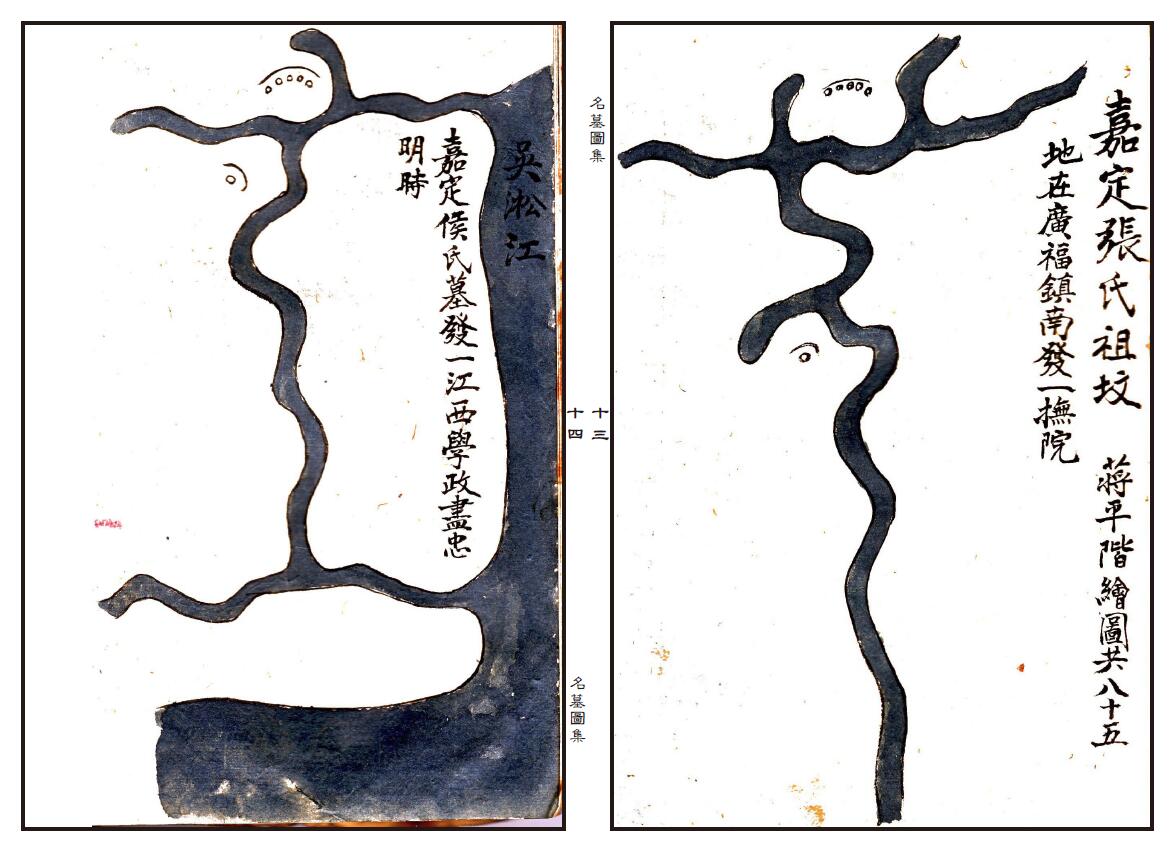 嘉定張氏祖坟 蔣平階繪圖共八十五
地在廣福鎮南發一撫院
名墓圖集
十三
十四
名墓圖集
吳淞江
嘉定侯氏墓發一江西學政盡忠
明時